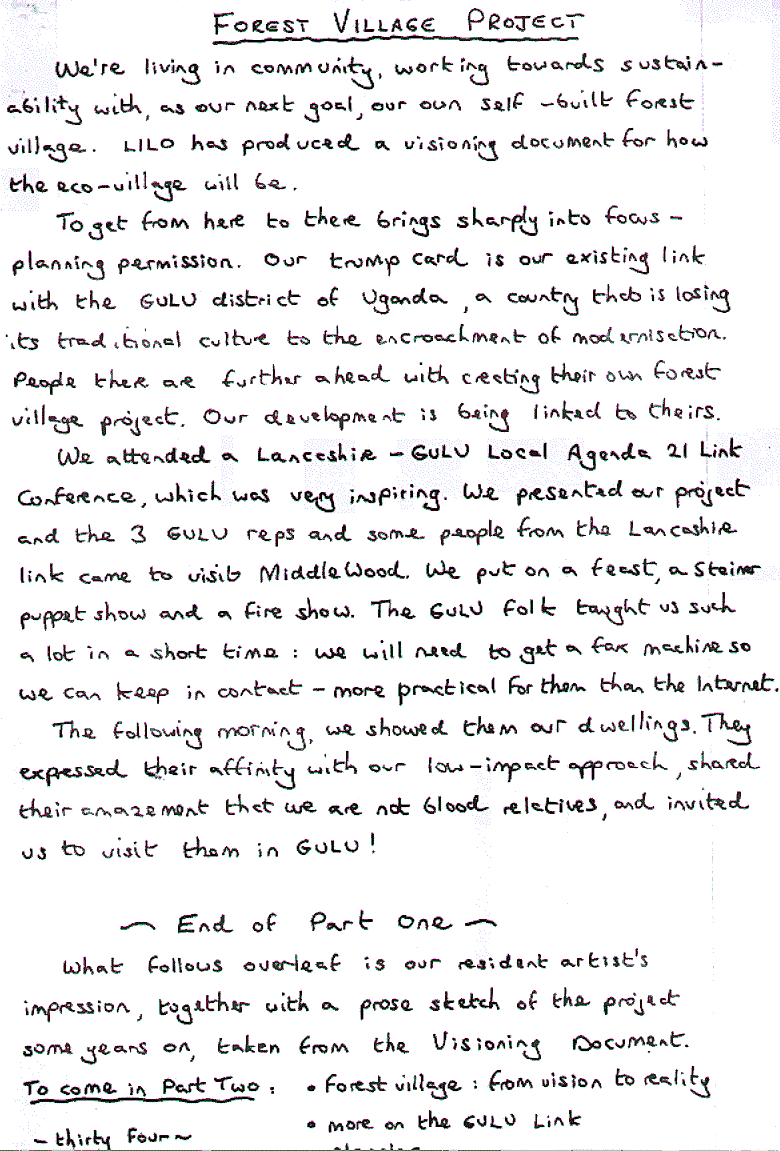 FOREST VILLAGE PROJECT
We're living in community, working towards sustain-
ability with, as our next goal, our own self-built forest
village. LILO has produced a visioning document for how
the eco-village will be.
To get from here to there brings sharply into focus -
planning permission. Our trump card is our existing link
with the GULU district of Uganda, a country that is losing
its traditional culture to the encroachment of modernisation.
People there are further ahead with creating their own forest
village project. Our development is being linked to theirs.
We attended a Lancashire - GULU Local Agenda 21 Link
Conference, which was very inspiring. We presented our project
and the 3 GULU reps and some people from the Lancashire
link came to visit MiddleWood. We put on a feast, a Steiner
puppet show and a fire show. The GULU folk taught us such
a lot in a short time : we will need to get a fax machine so
we can keep in contact - more practical for them than the Internet.
The following morning, we showed them our dwellings. They
expressed their affinity with our low-impact approach, shared
their amazement that we are not blood relatives, and invited
us to visit them in GULU!
~ End of Part One ~
What follows overleaf is our resident artist's
impression, together with a prose sketch of the project
some years on, taken from the Visioning Document.
To come in Part Two : • Forest village : from vision to reality
• more on the GULU Link
~ thirty four ~